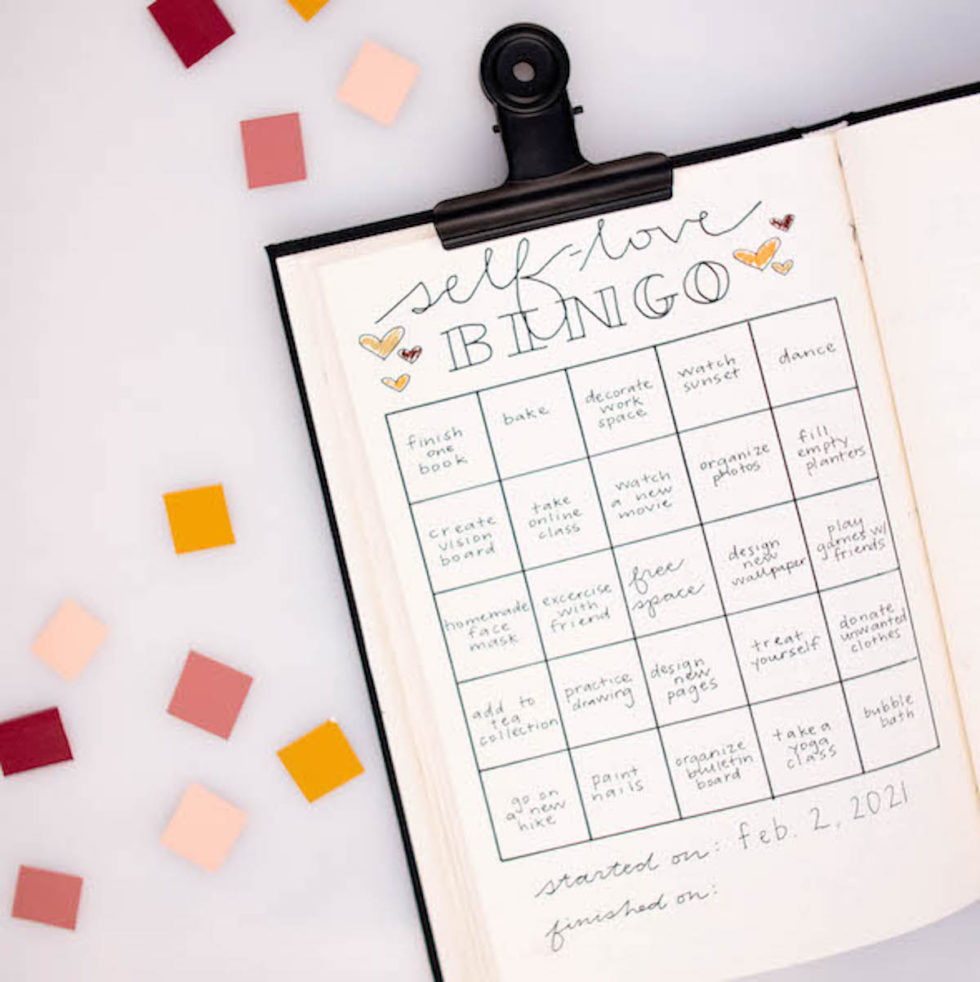 self-love
BINGO
finish
one
book
bake
decorate
work
space
watch
sunset
dance
create
vision
board
take
online
class
watch
a new
movie
organize
photos
fill
empty
planters
homemade
face
mask
excercise
with
friend
free
space
design
new
wallpaper
play
games w/
friends
add to
tea
collection
practice
drawing
design
new
pages
treat
yourself
donate
unwanted
clothes
go on
a new
hike
paint
nails
organize
bluletin
board
take a
yoga
class
bubble
bath
started on: feb. 2, 2021
finished on: